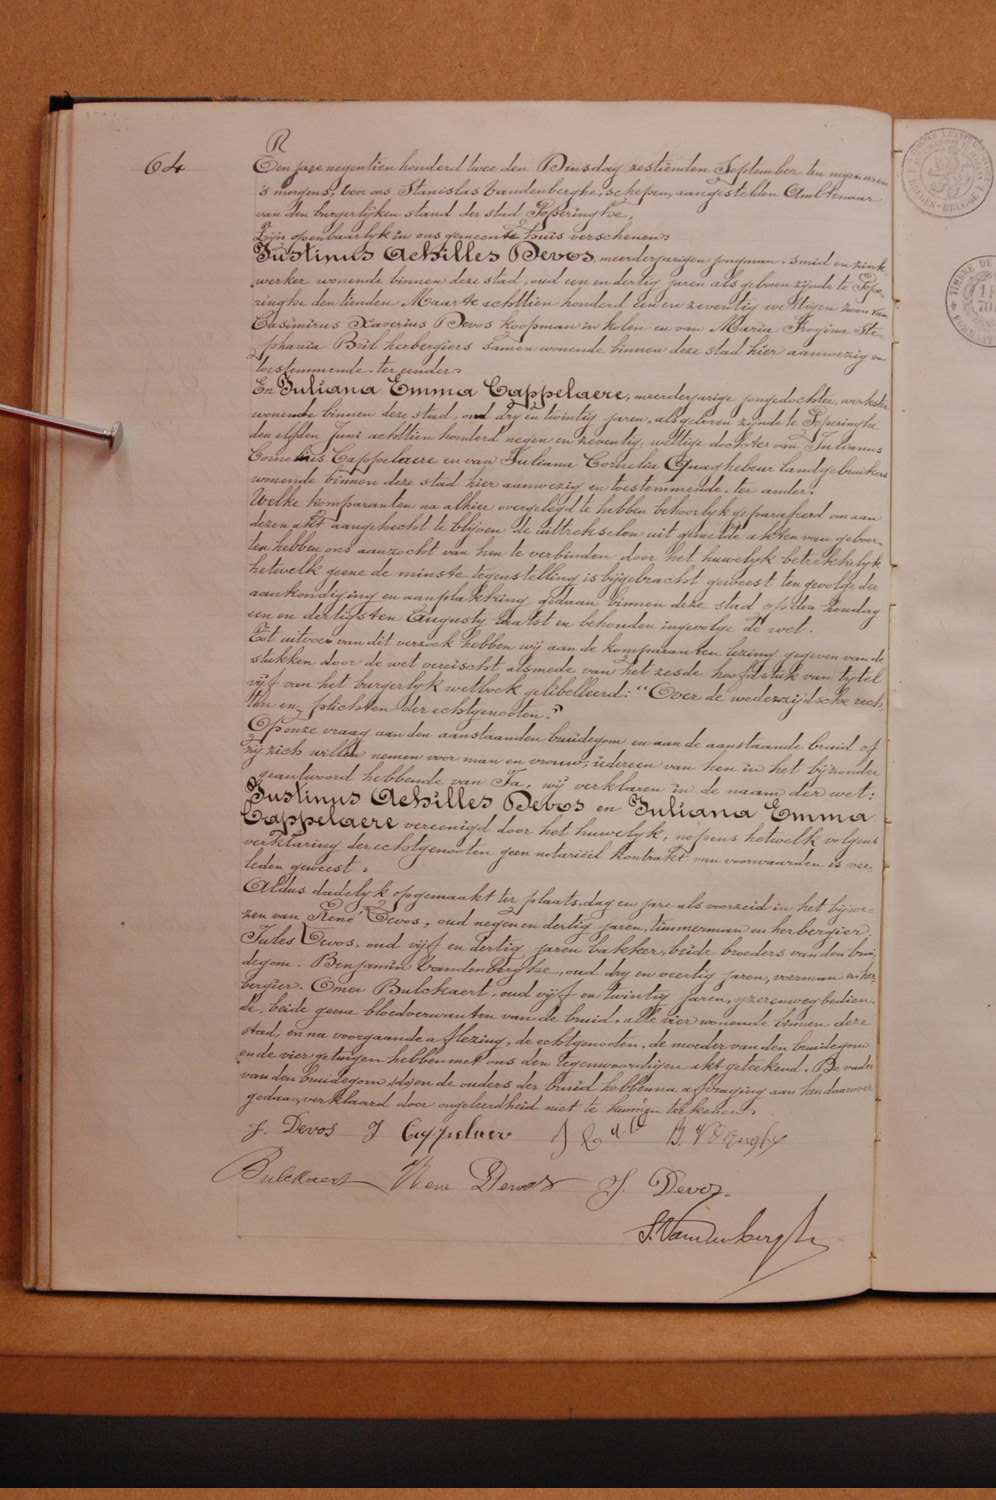 64
R
Een jare negentien honderd twee den Dinsdag zestienden September ten negen uren
's morgens, voor ons Stanislas Vandenberghe, schepen, aangestelden Ambtenaar
van den burgerlijken stand der stad Poperinghe,
Zijn openbaarlyk in ons gemeente huis verschenen:
Justinus Achilles Devos, meerderjarigen jongman, smid en zink
werker wonende binnen deze stad, oud een en dertig jaren als geboren zijnde te Pope-
ringhe den tienden Maarte achttien honderd een en zeventig wettigen zoon van
Casimirus Xaverius Devos koopman in kolen en van Maria Ste-
phania Bril herbergiers samen wonende binnen deze stad hier aanwezig en
toestemmende ter eender
En Juliana Emma Cappelaere, meerderjarige jongedochter, werkster
wonende binnen deze stad, oud dry en twintig jaren, als geboren zijnde te Poperinghe
den elfden Juni achttien honderd negen en zeventig, wettige dochter van
Cornelius Cappelaere en van Juliana Cornelia Quaghebeur landgebruikers
wonende binnen deze stad hier aanwezig en toestemmende, ter ander.
Welke komparanten na alhier overgelegd te hebben behoorlyk geparafeerd om aan
dezen akt aangehecht te blijven de uittrekselen uit gemelde akten van geboor-
ten hebben ons aanzocht van hen te verbinden door het huwelyk betrekkelyk
hetwelk geene de minste tegenstelling is bijgebracht geweest ten gevolge der
aankondiging en aanplakking gedaan binnen deze stad op den Zondag
een en dertigsten Augusty laatst en behouden ingevolge de wet.
Tot uitvoer van dit verzoek hebben wij aan de komparanten lezing gegeven van de
stukken door de wet vereischt alsmede van het zesde hoofdstuk van tytel
vijf van het burgerlyk wetboek gelibelleerd: "Over de wederzijdsche rech-
ten en plichten der echtgenooten."
Op onze vraag aan den aanstaanden bruidegom en aan de aanstaande bruid of
zij zich willen nemen voor man en vrouw, iedereen van hen in het bijzonder
geantwoord hebbende van Ja, wij verklaren in de naam der wet:
Justinus Achilles Devos en Juliana Emma
Cappelaere vereenigd door het huwelyk, nopens hetwelk volgens
verklaring der echtgenooten geen notariëel kontrakt van voorwaarden is ver-
leden geweest.
Aldus dadelyk opgemaakt ter plaats, dag en jare als voorzeid in het bijwe-
zen van René Devos, oud negen en dertig jaren, timmerman en herbergier,
Jules Devos, oud vijf en dertig jaren bakker, beide broeders van den brui-
degom. Benjamin Vandenberghe, oud dry en veertig jaren, voerman en her-
bergier. Omer Bulckaert, oud vijf en twintig jaren, yzerenweg bedien-
de, beide geene bloedverwanten van de bruid, alle vier wonende binnen deze
stad, en na voorgaande aflezing, de echtgenooten, de moeder van den bruidegom
en de vier getuigen hebben met ons den tegenwoordigen akt geteekend. De vader
van den bruidegom, de ouders der bruid hebben na afvraging aan hen daarover
gedaan, verklaard door ongeleerdheid niet te kunnen teekenen.
J. Devos J Cappelaere
Bulckaert Rene Devos J. Devos
S. Vandenberghe